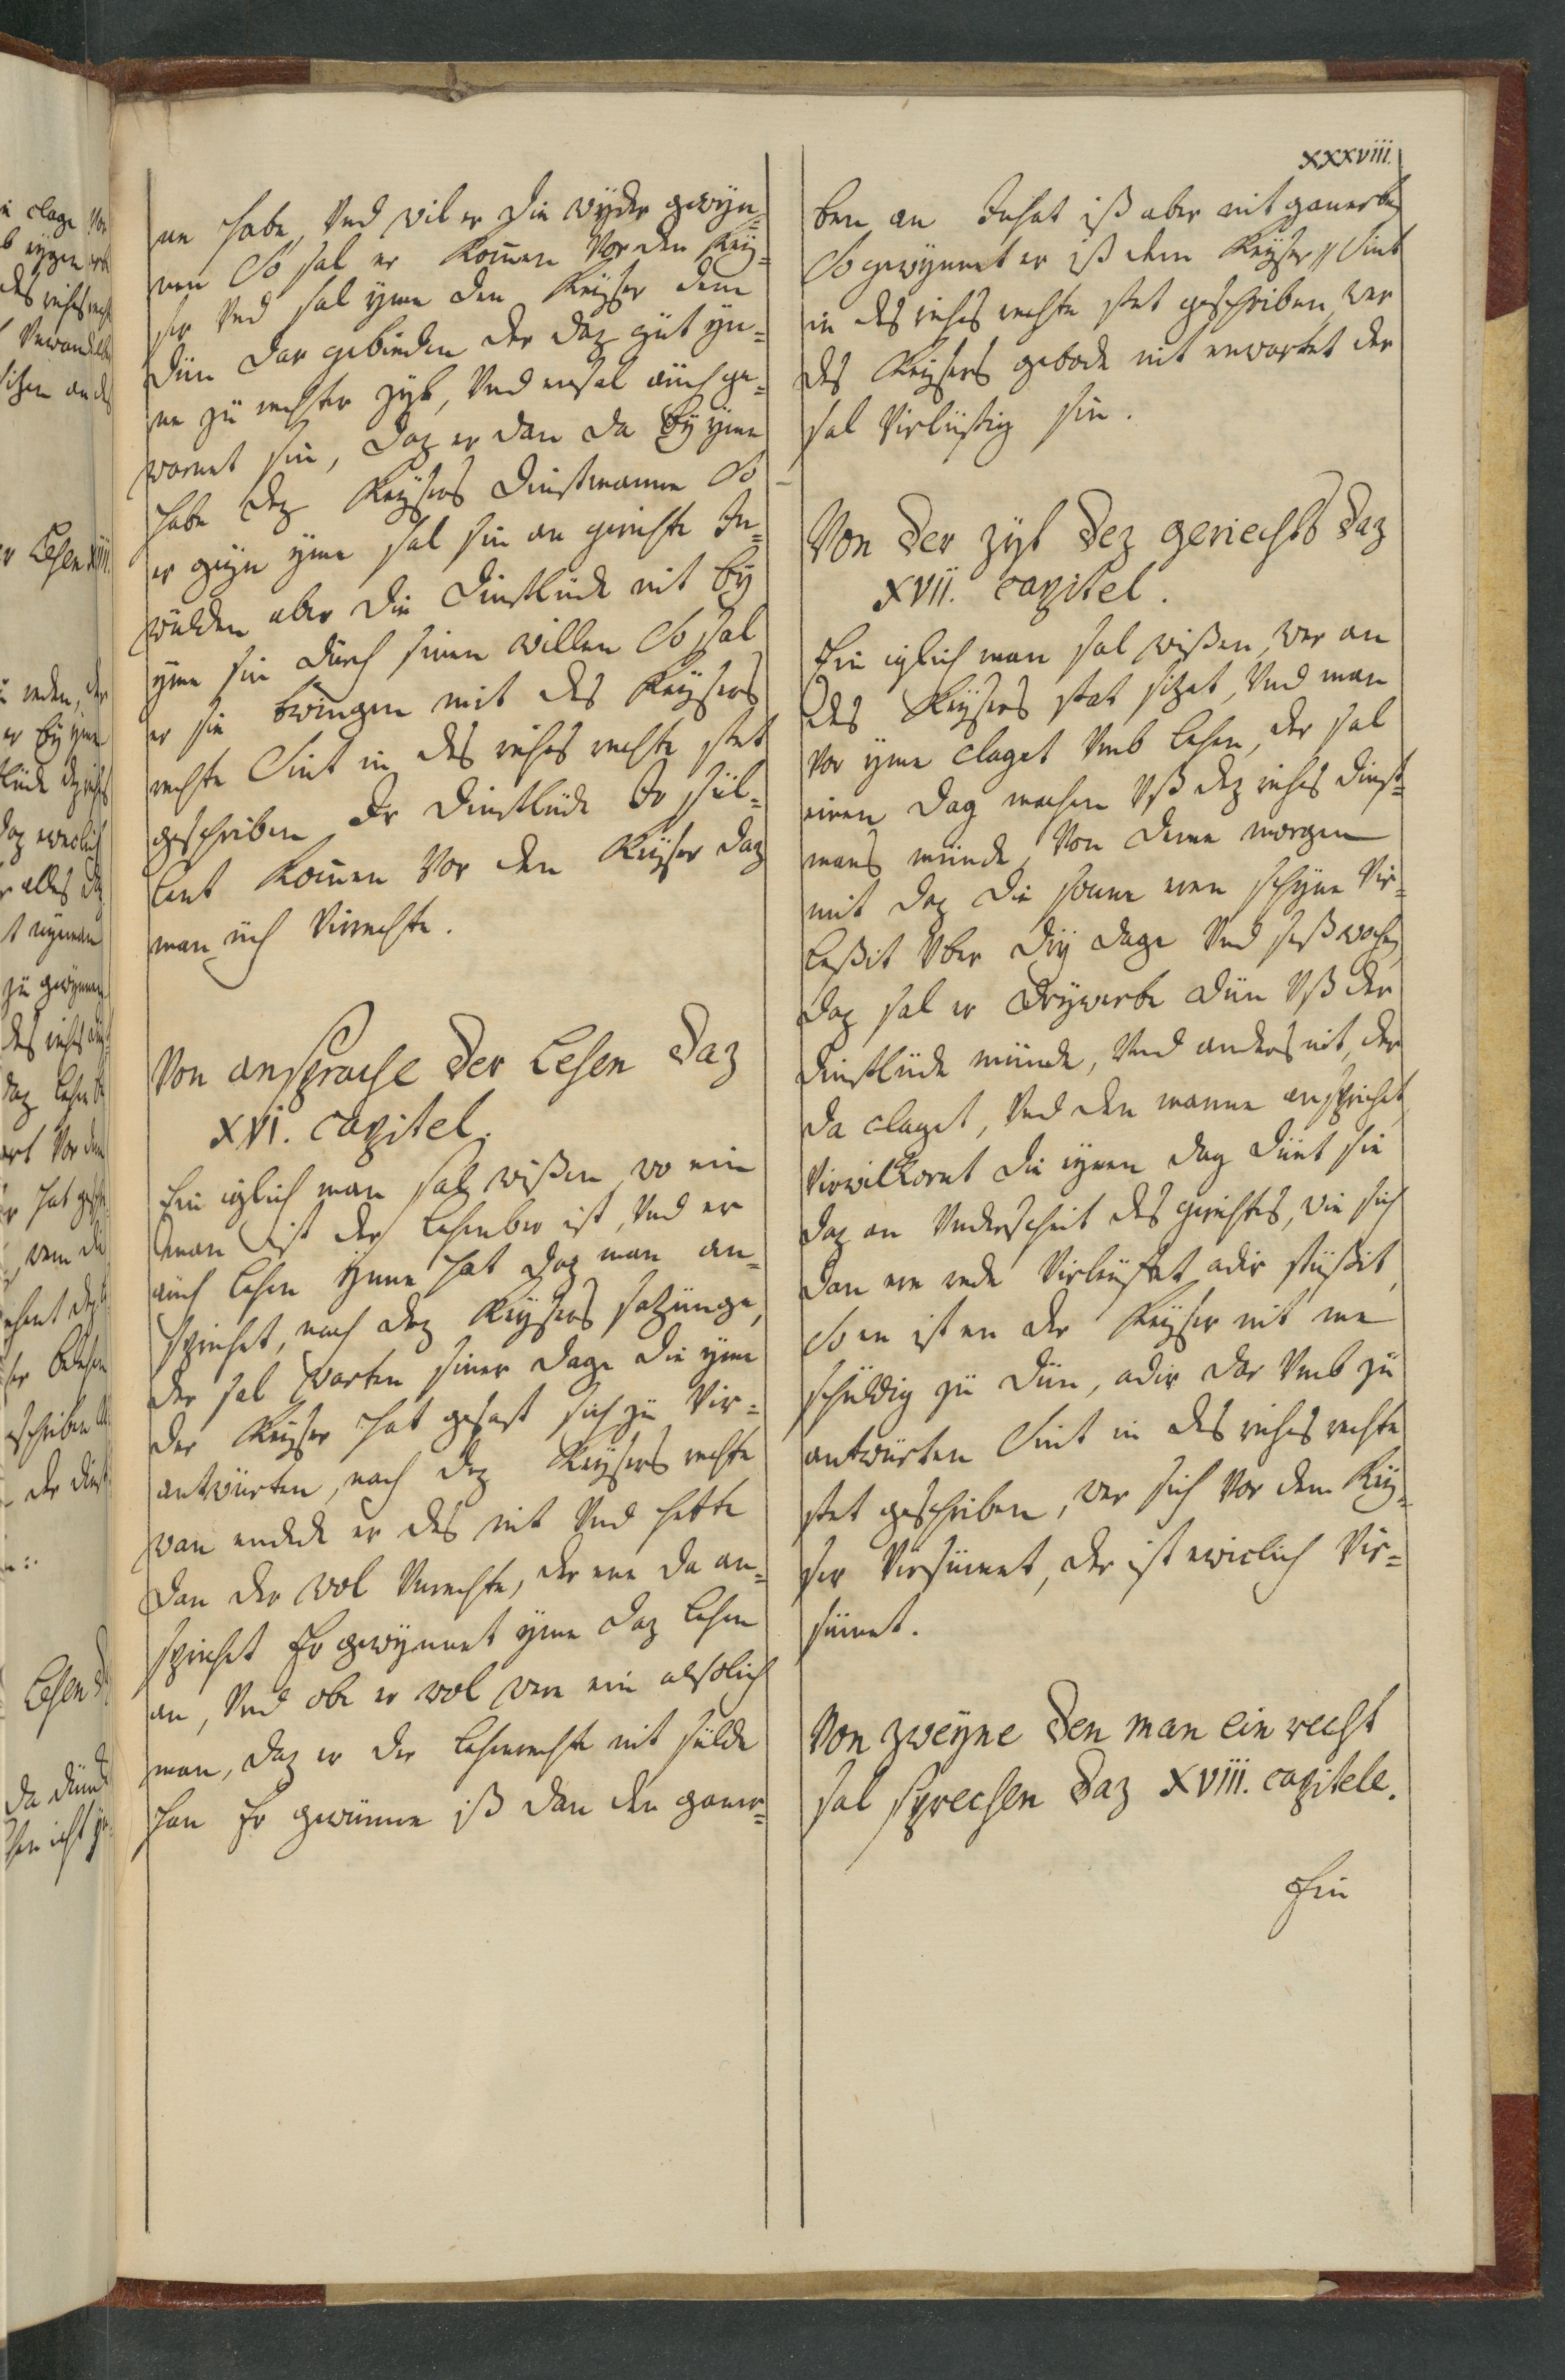 xxxviii.
ne habe, Vnd wil er die wyder gewyn=
nen So sal er komen Vor den Key=
ser Vnd sal yme den Keyser dem
dün dar gebieden der daz güt yn=
ne zü rechter zyt, Vnd ersal auch ge=
warnet sin, daz er dan da by yme
habe dez Keysers dinstmanne So
er geyn yme sal sin an gerichte In=
wülden aber die dinstlüde nit by
yme sin durch sinen willen So sal
er sie twingen mit des Keysers
rechte Sint in des riches rechte stet
geschriben Ir dinstlüde Ir sül=
lent komen Vor den Keyser daz
man üch Virrechte.
Von ansprache der Lehen daz
XVI. capitel.
Ein iglich man sal wißen, wo ein
man ist der lehenber ist, Vnd er
auch lehen ynne hat daz man an=
sprichet, nach dez Keysers satzunge,
der sal warten siner dage die yme
der Keyser hat gesast sich zü Vir=
antwürten, nach dez Keysers rechte
wan endede er des nit Vnd hette
dan der wol Vnrechte, der ene da an=
sprichet Er gewynnet yme daz lehen
an, Vnd obe er wol were ein alsolich
man, daz er der lehenrechte nit sulde
han Er gewünne iß dan den ganer=
ben an Inhat iß aber nit ganerben
So gewynnet er iß dem Keyser // Sint
in des riches rechte stet geschriben, wer
des Keysers gebode nit enwartet der
sal Virlüstig sin.
Von der zyt dez geriechts daz
XVII. capitel.
Ein iglich man sal wißen, wer an
des Keysers stat sitzet, Vnd man
vor yme claget Vmb lehen, der sal
einen dag machen Vß dez riches dinst=
mans münde, Von deme morgen
mit daz die sonne eren schyne Vir=
leßit Vber dry dage Vnd seßwochen,
daz sal er drywerbe dün Vß der
dinstlüde münde, Vnd anders nit, der
da claget, Vnd den manne ansprichet,
Virwilkornt die eynen dag dünt sie
daz an Vnderscheit des gerichtes, wie sich
dan ere rede Virlüstet adir stüßit,
So en ist en der Keyser nit me
schuldig zü dün, adir dar Vmb zü
antwürten Sint in des riches rechte
stet geschriben, wer sich Vor dem Key=
ser Virsümet, der ist ewiclich Vir=
sümet.
Von zweyne den man ein recht
sal sprechen daz XVIII. capitele.
Ein